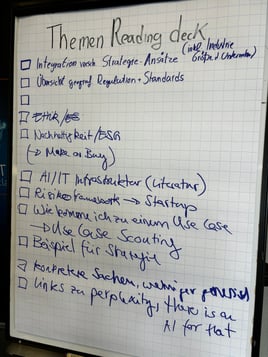 Themen Reading deck
Integration versch Strategie-Ansätze (inkl Industrie
Größe d Unternehmen)
Übersicht geograf Regulation + Standards
Ethik/
Nachhaltigkeit/ESG
(→ Make or Buy)
AI/IT Infrastruktur (Literatur)
Risikoframework → Startup
Wie komme ich zu einem Use Case
→ Use Case Scouting
Beispiel für Strategie
Konkrete Sachen, weniger generisch
Links zu perplexity, there is an
AI for that